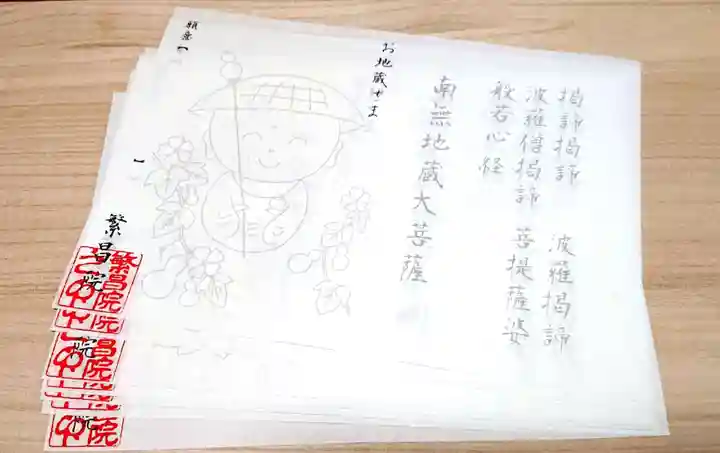 羯諦羯諦　波羅羯諦
波羅僧羯諦　菩提薩婆
般若心経
南無地蔵大菩薩
お地蔵さま
願意【　】
繁昌院
繁昌院
院
昌院
院
院
院